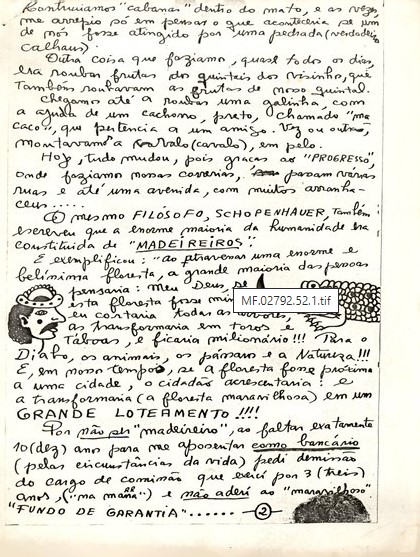 Construiamos "cabanas" dentro do mato, e as vezes
me arrepio só em pensar o que aconteceria se um
de nós fosse atingido por uma pedrada (verdadeiro
calhau).
Outra coisa que faziamo, quase todos os dias,
era roubar frutas dos quintais dos visinho, que
Também roubavam as frutas de nosso quintal.
Chegamos até a roubar uma galinha, com
a ajuda de um cachorro, preto, chamado "ma
caco", que pertencia a um amigo. Vez ou outra,
montavam a (cavalo), em pelo.
Hoj, tudo mudou, pois graças ao "PROGRESSO",
onde faziamos nossas passam várias
ruas e até uma avenida, com muitos arranha-
ceus.....
O mesmo FILÓSOFO, SCHOPENHAUER, Também
escreveu que a enorme maioria da humanidade era
constituida de "MADEIREIROS".
E exemplificou: "ao atravessar uma enorme e
belíssima floresta, a grande maioria das pessoas
pensaria: Meu Deus, se
esta floresta fosse
MF.02792.52.1.tif
eu cortaria todas as árvores,
as transformaria em toros e
Tábuas, e ficaria milionário!!! Para o
Diabo, os animais, os pássaros e a Natureza!!!
E, em nosso tempos, se a floresta fosse próxima
a uma cidade, o cidadão acrescentaria: e
a transformaria (a floresta maravilhosa) em um
GRANDE LOTEAMENTO!!!!
Por não ser "madeireiro", ao faltar exatamente
10 (dez) anos para me aposentar como bancário
(pelas circunstâncias da vida) pedi demissão
do cargo de comissão que exerci por 3 (três)
anos, e não aderi ao "maravilhoso"
"FUNDO DE GARANTIA"...... — 2 —